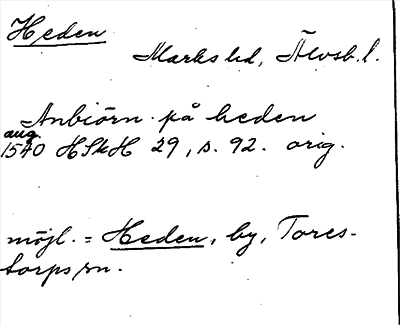 Heden
Marks hd, Älvsb. l.
Anbiörn på heden
aug.
1540 HSkH 29, s. 92. orig.
möjl. = Heden, by, Tores-
torps sn.